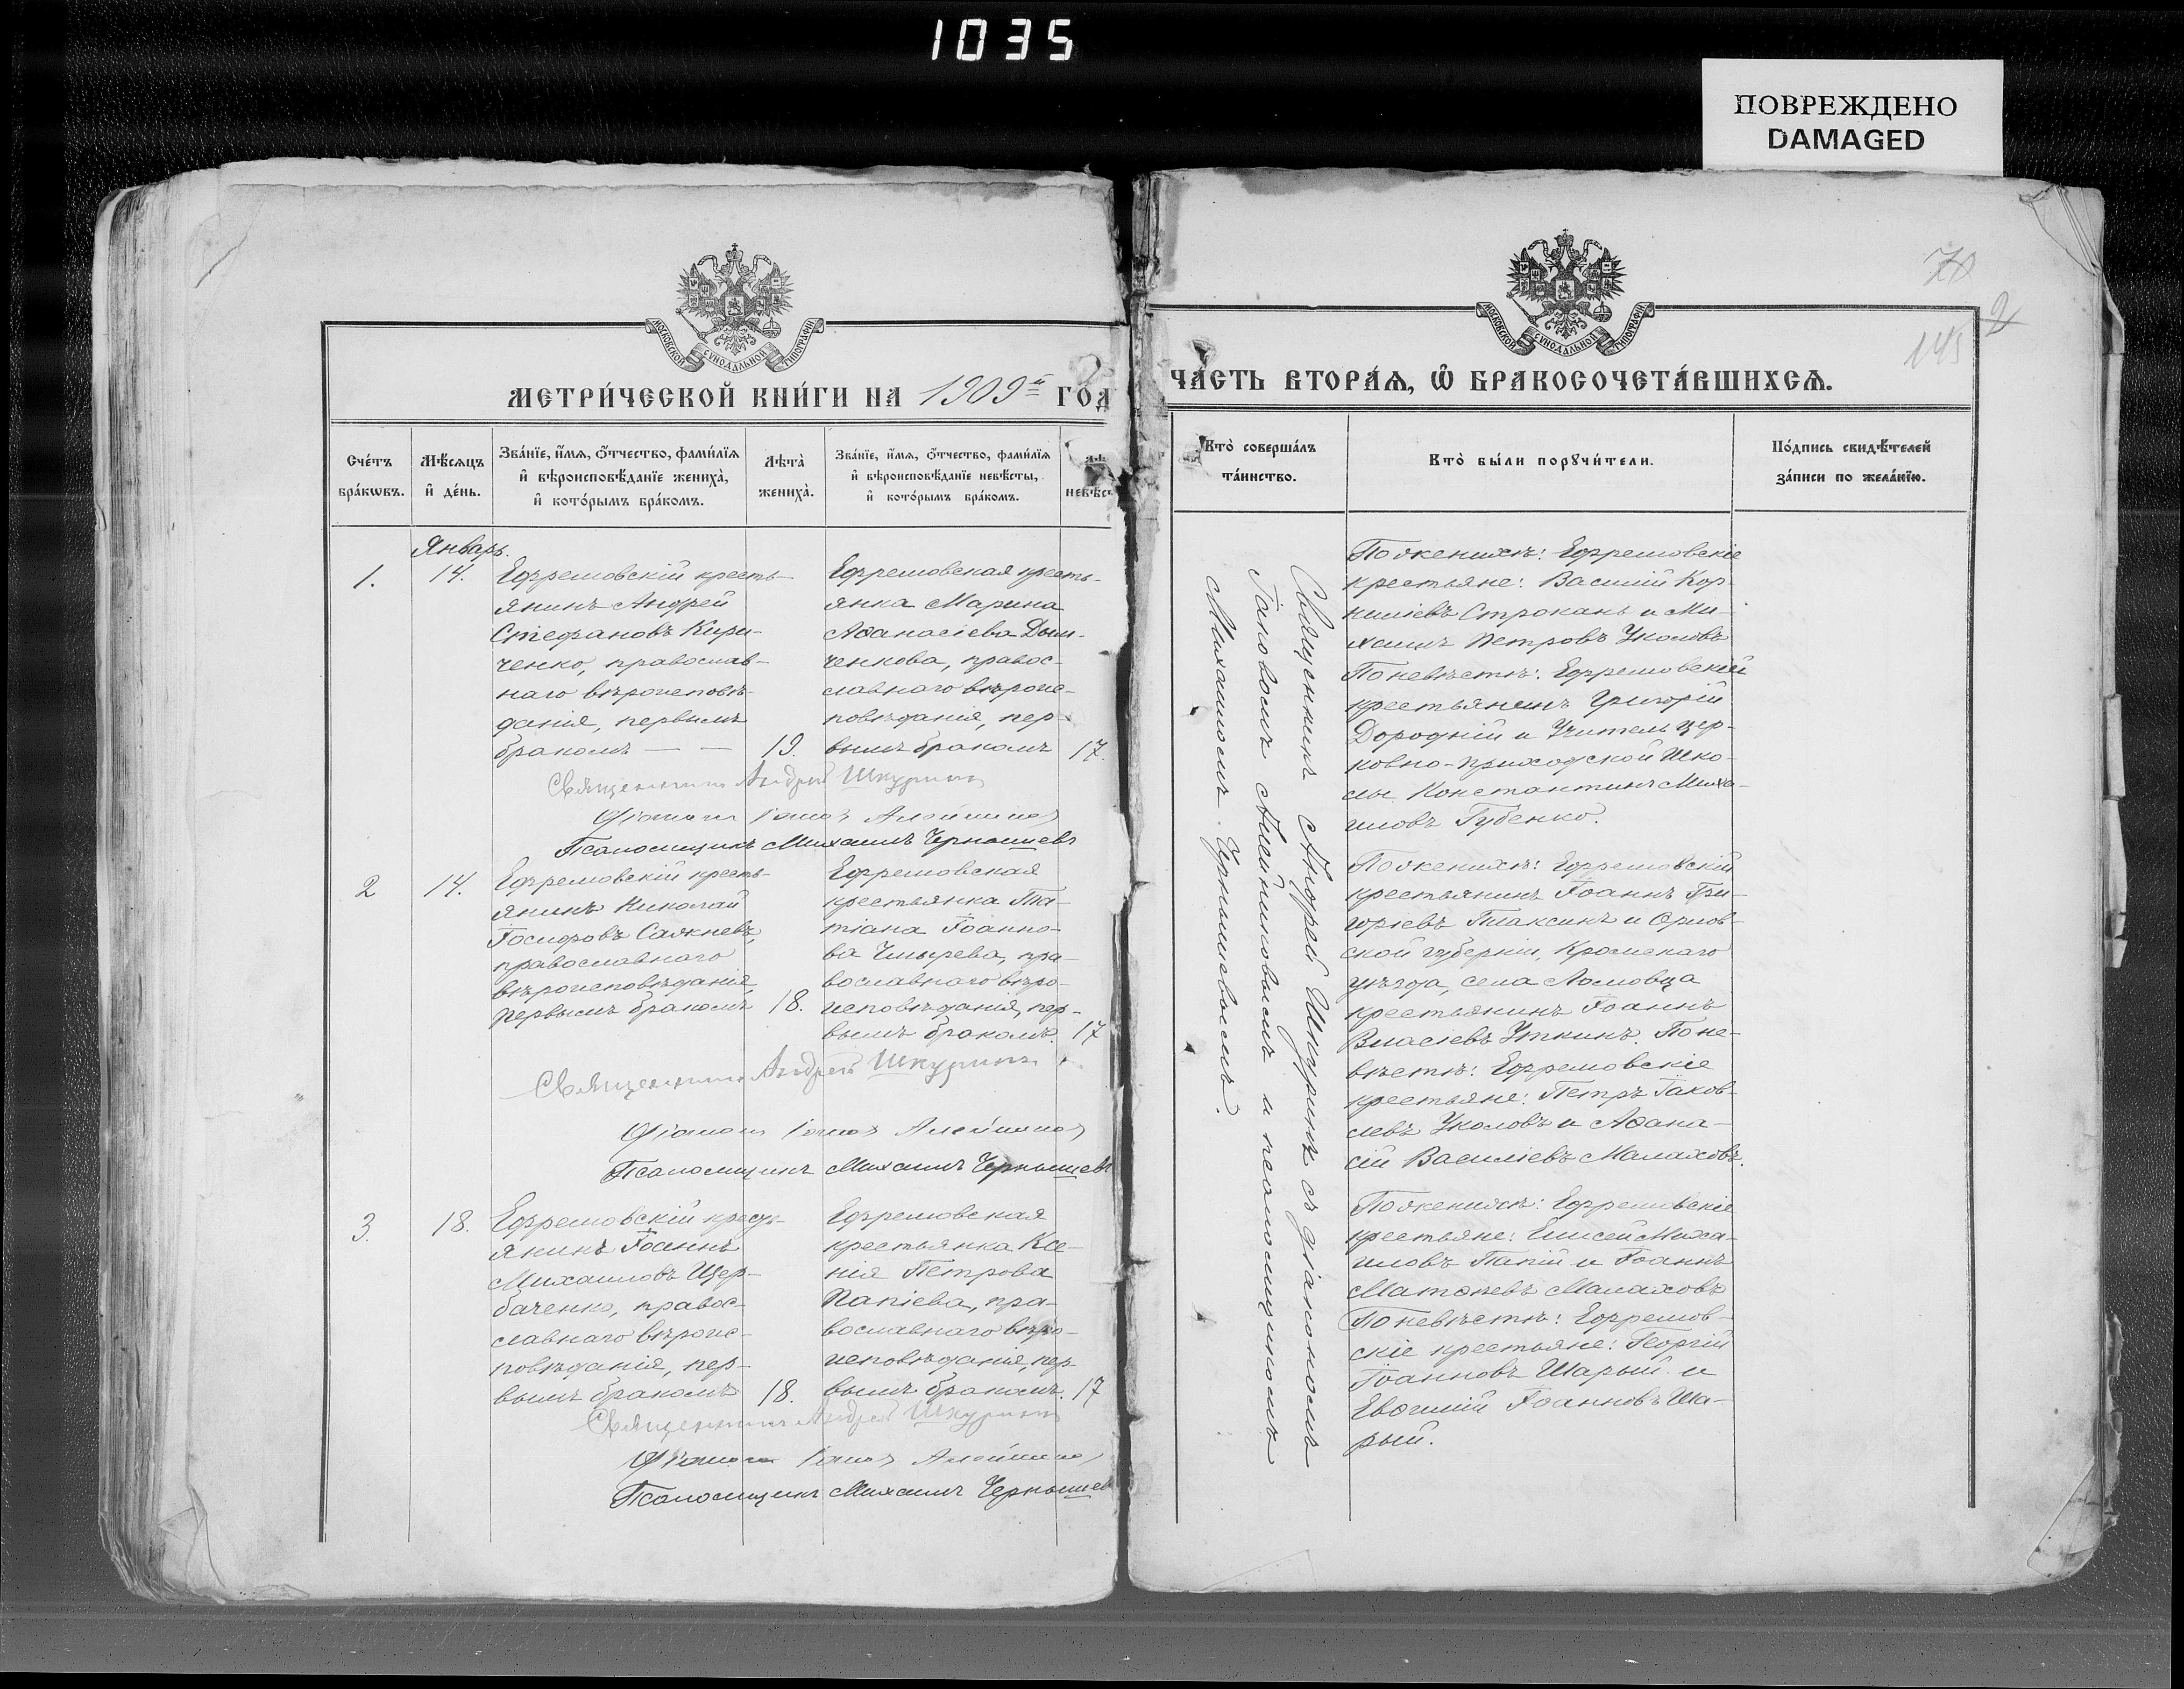 1035
ПОВРЕЖДЕНО
DAMAGED
МОСКОВСКОЙ СѴНОДАЛЬНОЙ ТИПОГРАФІИ
МЕТРИ́ЧЕСКОЙ КНИ́ГИ НА 1909й ГОД
Сче́тъ
бра́кѡвъ.
Мѣ́сяцъ
и҆ де́нь.
Зва́нїе, и҆́мѧ, ѻ҆́тчество, фами́лїѧ
и҆ вѣроисповѣ́данїе жениха̀,
и҆ кото́рымъ бра́комъ.
Лѣ́та̀
жениха̀.
Зва́нїе, и҆́мѧ, ѻ҆́тчество, фами́лїѧ
и҆ вѣроисповѣ́данїе невѣ́сты,
и҆ кото́рымъ бра́комъ.
лѣ
невѣс
Январь.
1.
14.
Ефремовскій кресть-
янинъ Андрей
Стефановъ Кири-
ченко, православ-
наго вѣроисповѣ-
данія, первымъ
бракомъ — —
19.
Ефремовская кресть-
янка Марина
Аѳанасіева Дом-
ченкова, правос-
лавнаго вѣроис-
повѣданія, пер-
вымъ бракомъ
17.
Священникъ Андрей Шкуринъ
Діаконъ Іаковъ Алейниковъ
Псаломщикъ Михаилъ Чернышевъ
2
14.
Ефремовскій кресть-
янинъ Николай
Іосифовъ Сажневъ,
православнаго
вѣроисповѣданія,
первымъ бракомъ
18.
Ефремовская
крестьянка Та-
тіана Іоанно-
ва Чмырева, пра-
вославнаго вѣро-
исповѣданія, пер-
вымъ бракомъ.
17
Священникъ Андрей Шкуринъ
Діаконъ Іаковъ Алейниковъ
Псаломщикъ Михаилъ Чернышевъ
3.
18.
Ефремовскій кресть-
янинъ Іоаннъ
Михаиловъ Щер-
баченко, правос-
лавнаго вѣроис-
повѣданія, пер-
вымъ бракомъ
18.
Ефремовская
крестьянка Ксе-
нія Петрова
Папіева, пра-
вославнаго вѣро-
исповѣданія, пер-
вымъ бракомъ.
17
Священникъ Андрей Шкуринъ
Діаконъ Іаковъ Алейниковъ
Псаломщикъ Михаилъ Чернышев
70
2
145
МОСКОВСКОЙ СѴНОДАЛЬНОЙ ТИПОГРАФІИ
ЧА́СТЬ ВТОРА́Ѧ, Ѡ҆ БРАКОСОЧЕТА́ВШИХСѦ.
Кто̀ соверша́лъ
та́инство.
Кто̀ бы́ли порꙋчи́тели.
По́дпись свидѣ́телей
за́писи по жела́нїю.
Священникъ Андрей Шкуринъ съ діакономъ
Іаковомъ Алейниковымъ и псаломщикомъ
Михаиломъ Чернышевымъ.
По женихѣ: Ефремовскіе
крестьяне: Василій Кор-
ниліевъ Строкань и Ми-
хаилъ Петровъ Уколовъ
По невѣстѣ: Ефремовскій
крестьянинъ Григорій
Дородній и Учитель цер-
ковно-приходской Шко-
лы Константинъ Миха-
иловъ Губенко.
По женихѣ: Ефремовскій
крестьянинъ Іоаннъ Гри-
горіевъ Плаксинъ и Орлов-
ской губерніи, Кромскаго
уѣзда, села Ломовца
крестьянинъ Іоаннъ
Власіевъ Уткинъ. По не-
вѣстѣ: Ефремовскіе
крестьяне: Петръ Іаков-
левъ Уколовъ и Аѳана-
сій Василіевъ Малаховъ.
По женихѣ: Ефремовскіе
крестьяне: Елисей Миха-
иловъ Папій и Іоаннъ
Матѳіевъ Малаховъ
По невѣстѣ: Ефремов-
скіе крестьяне: Георгій
Іоанновъ Шарый и
Евѳимій Іоанновъ Ша-
рый.